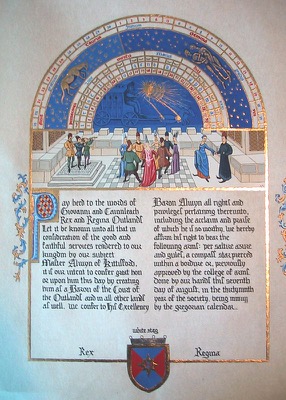 Pay heed to the words of
Giovanni and Cannileach
Rex and Regina Outlandi
Let it be known unto all that in
consideration of the good and
faithful services rendered to our
kingdom by our subject
Master Alwyn of
it is our intent to confer upon him
or upon him this day by creating
him as a Baron of the Court of
the Outlands and in all other lands
as well. We confer to his Excellency
Baron Alwyn all rights and
privileges pertaining thereunto,
including the acclaim and praise
of which he is so worthy, we hereby
affirm his right to bear the
following arms: per saltire azure
and gules, a compass star pierced
within a bordure or, previously
approved by the college of arms.
Done by our hands this seventh
day of august, in the
year of the society, being
by the gregorian calendar...
white stag
Rex
Regina